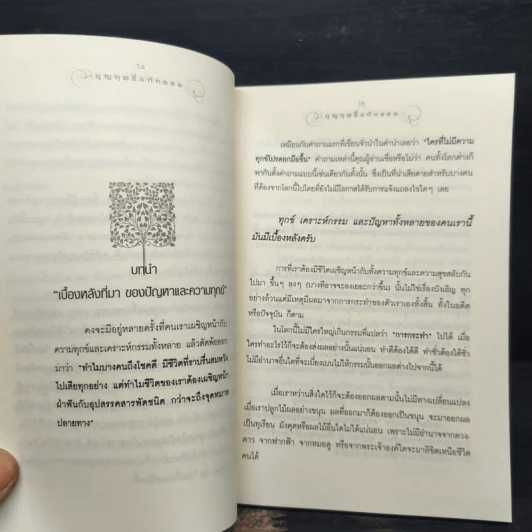 14
บทนำ
"เบื้องหลังที่มา ของปัญหาและความทุกข์"
คงจะมีอยู่หลายครั้งที่คนเราเผชิญหน้ากับ
ความทุกข์และเคราะห์กรรมทั้งหลาย แล้วตัดพ้อออก
มาว่า "ทำไมบางคนถึงโชคดี มีชีวิตที่ราบรื่นสมหวัง
ไปเสียทุกอย่าง แต่ทำไมชีวิตของเราต้องเผชิญหน้า
ฝ่าฟันกับอุปสรรคสารพัดชนิด กว่าจะถึงจุดหมาย
ปลายทาง"
15
เหมือนกับคำถามแรกที่เขียนจั่วนำในคำนำเลยว่า "ใครที่ไม่มีความ
ทุกข์โปรดยกมือขึ้น" คำถามเหล่านี้คุณผู้อ่านเชื่อหรือไม่ว่า คนทั้งโลกต่างก็
พากันตั้งคำถามแบบนี้เช่นเดียวกันทั้งนั้น ซึ่งเป็นที่น่าเสียดายสำหรับบางคน
ที่ต้องจากโลกนี้ไปโดยที่ยังไม่มีโอกาสได้รับการแจ้งแถลงไขใดๆ เลย
ทุกข์ เคราะห์กรรม และปัญหาทั้งหลายของคนเรานี้
มันมีเบื้องหลังครับ
การที่เราต้องมีชีวิตเผชิญหน้ากับทั้งความทุกข์และความสุขสลับกัน
ไปมา ขึ้นๆ ลงๆ (บางทีอาจจะลงเยอะกว่าขึ้น) นั้นไม่ใช่เรื่องบังเอิญ ทุก
อย่างล้วนแต่มีเหตุมีผลมาจากการกระทำของตัวเราเองทั้งสิ้น ทั้งในอดีต
หรือปัจจุบัน ก็ตาม
ในโลกนี้ไม่มีใครใหญ่เกินกรรมที่แปลว่า "การกระทำ" ไปได้ เมื่อ
ใครทำอะไรไว้ก็จะต้องส่งผลอย่างนั้นแน่นอน ทำดีต้องได้ดี ทำชั่วต้องได้ชั่ว
ไม่มีอำนาจอื่นใดที่จะเบี่ยงเบนไม่ให้กรรมนั้นออกผลต่างไปจากนี้ได้
เมื่อเราหว่านสิ่งใดไว้ก็ต้องออกผลตามนั้นไม่มีทางเปลี่ยนแปลง
เมื่อเราปลูกไม้ผลอย่างขนุน ผลที่ออกมาก็ต้องออกเป็นขนุน จะมาออกผล
เป็นทุเรียน มังคุดหรือผลไม้อื่นใดไม่ได้แน่นอน เพราะไม่มีอำนาจจากดวง-
ดาว จากฟากฟ้า จากหมอดู หรือจากพระเจ้าองค์ใดจะมาลิขิตเหนือชีวิต
คนได้